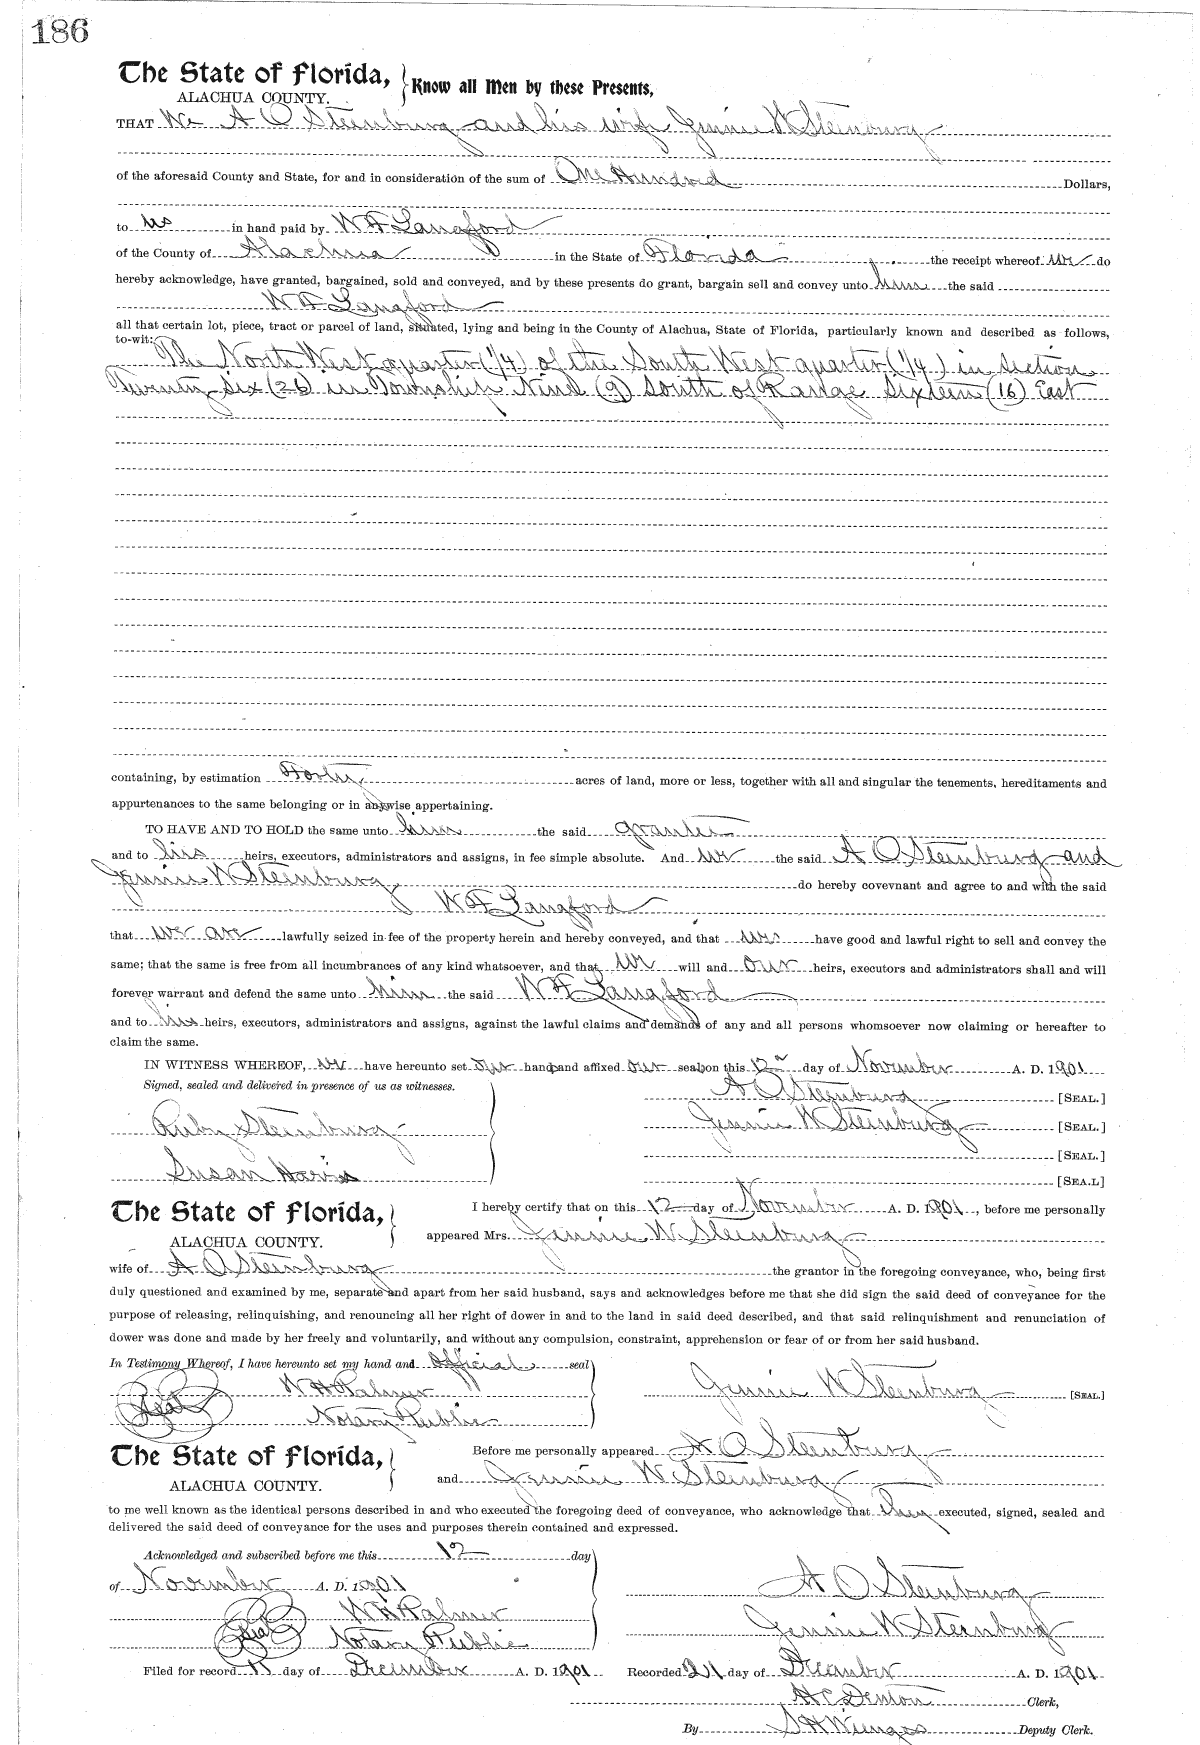 186
The State of Florida,
ALACHUA COUNTY.
Know all Men by these Presents,
THAT We A O Steenburg and his wife Jennie W Steenburg
of the aforesaid County and State, for and in consideration of the sum of One Hundred Dollars,
to us in hand paid by W F Langford
of the County of Alachua in the State of Florida the receipt whereof we do
hereby acknowledge, have granted, bargained, sold and conveyed, and by these presents do grant, bargain sell and convey unto him the said
W F Langford
all that certain lot, piece, tract or parcel of land, situated, lying and being in the County of Alachua, State of Florida, particularly known and described as follows,
to-wit:
The North West quarter (1/4) of the South West quarter (1/4) in section
Twenty Six (26) in Township Nine (9) South of Range Sixteen (16) East
containing, by estimation Forty acres of land, more or less, together with all and singular the tenements, hereditaments and
appurtenances to the same belonging or in anywise appertaining.
TO HAVE AND TO HOLD the same unto him the said grantee
and to his heirs, executors, administrators and assigns, in fee simple absolute. And we the said A O Steenburg and
Jennie W Steenburg do hereby covevnant and agree to and with the said
W F Langford
that we are lawfully seized in fee of the property herein and hereby conveyed, and that we have good and lawful right to sell and convey the
same; that the same is free from all incumbrances of any kind whatsoever, and that we will and our heirs, executors and administrators shall and will
forever warrant and defend the same unto him the said W F Langford
and to his heirs, executors, administrators and assigns, against the lawful claims and demands of any and all persons whomsoever now claiming or hereafter to
claim the same.
IN WITNESS WHEREOF, we have hereunto set our hand and affixed our seal on this 12 day of November A. D. 1901
Signed, sealed and delivered in presence of us as witnesses.
A O Steenburg [SEAL.]
Ruby Steenburg
Jennie W Steenburg [SEAL.]
[SEAL.]
Susan Harris
[SEA.L]
The State of Florida,
ALACHUA COUNTY.
I hereby certify that on this 12 day of November A. D. 1901, before me personally
appeared Mrs. Jennie W. Steenburg
wife of A O Steenburg the grantor in the foregoing conveyance, who, being first
duly questioned and examined by me, separate and apart from her said husband, says and acknowledges before me that she did sign the said deed of conveyance for the
purpose of releasing, relinquishing, and renouncing all her right of dower in and to the land in said deed described, and that said relinquishment and renunciation of
dower was done and made by her freely and voluntarily, and without any compulsion, constraint, apprehension or fear of or from her said husband.
In Testimony Whereof, I have hereunto set my hand and official seal
W H Palmer
Jennie W Steenburg [SEAL.]
Seal Notary Public
The State of Florida,
ALACHUA COUNTY.
Before me personally appeared A O Steenburg
and Jennie W. Steenburg
to me well known as the identical persons described in and who executed the foregoing deed of conveyance, who acknowledge that they executed, signed, sealed and
delivered the said deed of conveyance for the uses and purposes therein contained and expressed.
Acknowledged and subscribed before me this 12 day
of November A. D. 1901
A O Steenburg
W H Palmer
Jennie W Steenburg
Seal Notary Public
Filed for record day of December A. D. 1901 Recorded 21 day of December A. D. 1901
H C Denton Clerk,
By S H Wienges Deputy Clerk.